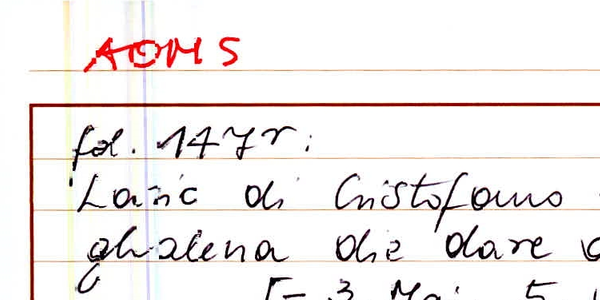 AOMS
fol. 147r:
di Cristofano
ghalena die dare
[- 3 Mai 5